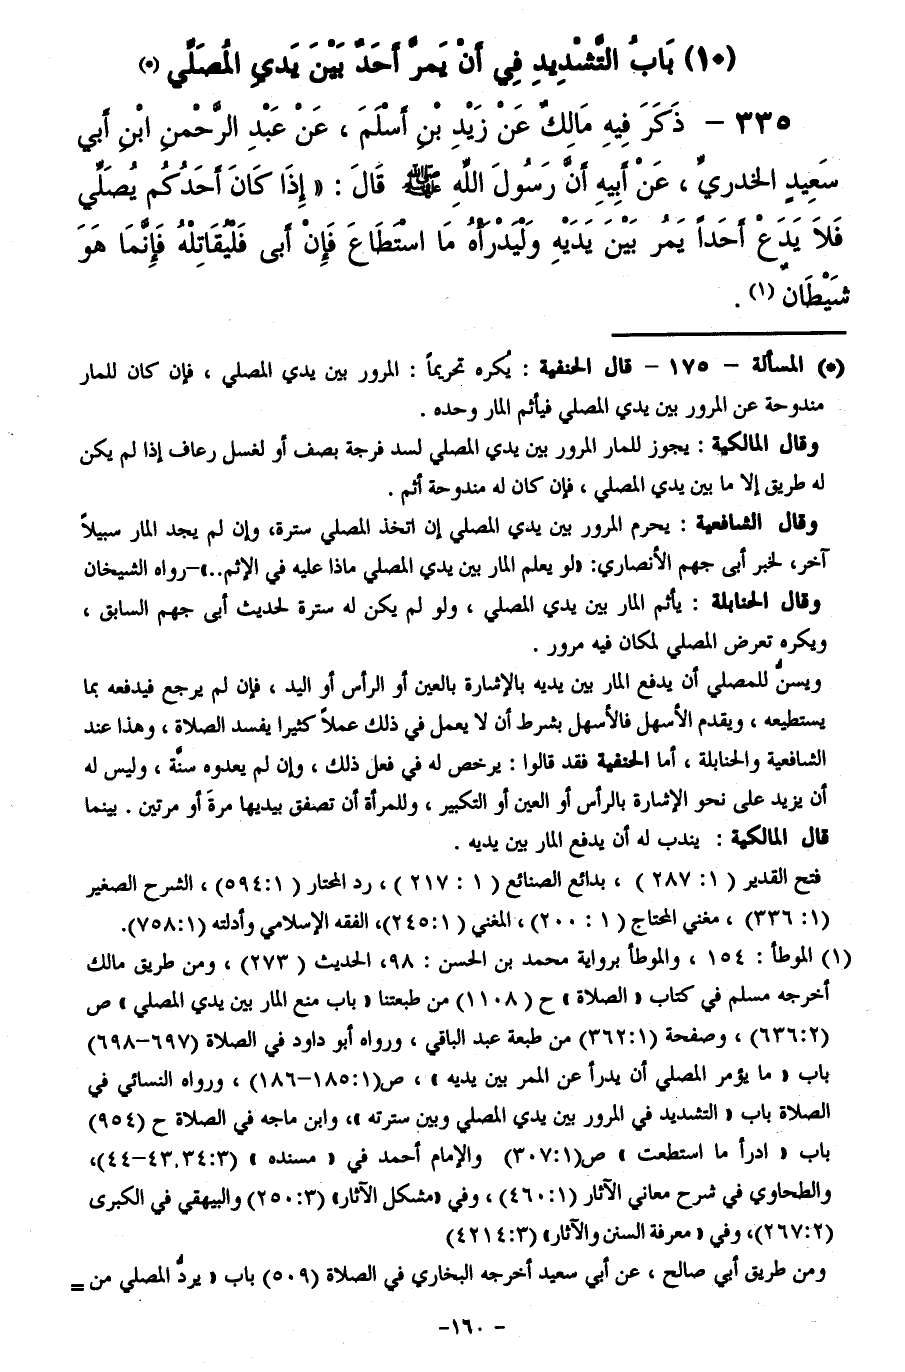 (١٠) بَابُ التَّشْدِيدِ فِي أَنْ يَمرَّ أَحَدٌ بَيْنَ يَدَيِ المُصَلِّي (*)
٣٣٥ - ذَكَرَ فِيهِ مَالِكٌ عَنْ زَيْدِ بْنِ أَسْلَمَ ، عَنْ عَبْدِ الرَّحْمنِ ابْنِ أَبي
سَعِيدٍ الخدريِّ ، عَنْ أَبِيهِ أَنَّ رَسُولَ اللَّهِ ﷺ قَالَ : « إِذَا كَانَ أَحَدُكُم يُصَلِّي
فَلاَ يَدَعْ أَحَداً يَمُر بَيْنَ يَدَيْهِ وَلْيَدْرَأْهُ مَا اسْتَطَاعَ فَإِنْ أَبى فَلْيُقَاتِلْهُ فَإِنَّمَا هَوَ
شَيْطَانٌ (١) .
(*) المسألة - ١٧٥ - قال الحنفية : يُكره تحريماً : المرور بين يدي المصلي ، فإن كان للمار
مندوحة عن المرور بين يدي المصلي فيأثم المار وحده .
وقال المالكية : يجوز للمار المرور بين يدي المصلي لسد فرجة بصف أو لغسل رعاف إذا لم يكن
له طريق إلا ما بين يدي المصلي ، فإن كان له مندوحة أثم .
وقال الشافعية : يحرم المرور بين يدي المصلي إن اتخذ المصلي سترة، وإن لم يجد المار سبيلاً
آخر، لخبر أبى جهم الأنصاري: «لو يعلم المار بين يدي المصلي ماذا عليه في الإثم..»-رواه الشيخان
وقال الحنابلة : يأثم المار بين يدي المصلي ، ولو لم يكن له سترة لحديث أبى جهم السابق ،
ويكره تعرض المصلي لمكان فيه مرور .
ويسنُّ للمصلي أن يدفع المار بين يديه بالإشارة بالعين أو الرأس أو اليد ، فإن لم يرجع فيدفعه بما
يستطيعه ، ويقدم الأسهل فالأسهل بشرط أن لا يعمل في ذلك عملاً كثيرا يفسد الصلاة ، وهذا عند
الشافعية والحنابلة ، أما الحنفية فقد قالوا : يرخص له في فعل ذلك ، وإن لم يعدوه سنَّة ، وليس له
أن يزيد على نحو الإشارة بالرأس أو العين أو التكبير ، وللمرأة أن تصفق بيديها مرةَ أو مرتين . بينما
قال المالكية : يندب له أن يدفع المار بين يديه .
فتح القدير ( ١: ٢٨٧ ) ، بدائع الصنائع ( ١ : ٢١٧ ) ، رد المحتار ( ٥٩٤:١) ، الشرح الصغير
(١: ٣٣٦) ، مغني المحتاج ( ١ : ٢٠٠) ، المغني ( ٢٤٥:١)، الفقه الإسلامي وأدلته (٧٥٨:١).
(١) الموطأ : ١٥٤ ، والموطأ برواية محمد بن الحسن : ٩٨، الحديث ( ٢٧٣) ، ومن طريق مالك
أخرجه مسلم في كتاب « الصلاة » ح ( ١١٠٨) من طبعتنا « باب منع المار بين يدي المصلي » ص
(٦٣٦:٢) ، وصفحة (٣٦٢:١) من طبعة عبد الباقي ، ورواه أبو داود في الصلاة (٦٩٧-٦٩٨)
باب « ما يؤمر المصلي أن يدرأ عن الممر بين يديه » ، ص(١٨٥:١-١٨٦) ، ورواه النسائي في
الصلاة باب « التشديد في المرور بين يدي المصلي وبين سترته »، وابن ماجه في الصلاة ح (٩٥٤)
باب « ادرأ ما استطعت » ص(٣٠٧:١) والإمام أحمد في « مسنده » (٤٣،٣٤:٣-٤٤)،
والطحاوي في شرح معاني الآثار (٤٦٠:١) ، وفي «مشكل الآثار» (٢٥٠:٣) والبيهقي في الكبرى
(٢٦٧:٢)، وفي « معرفة السنن والآثار» (٤٢١٤:٣)
ومن طريق أبي صالح ، عن أبي سعيد أخرجه البخاري في الصلاة (٥٠٩) باب « يردُّ المصلي من =
- ١٦٠ -